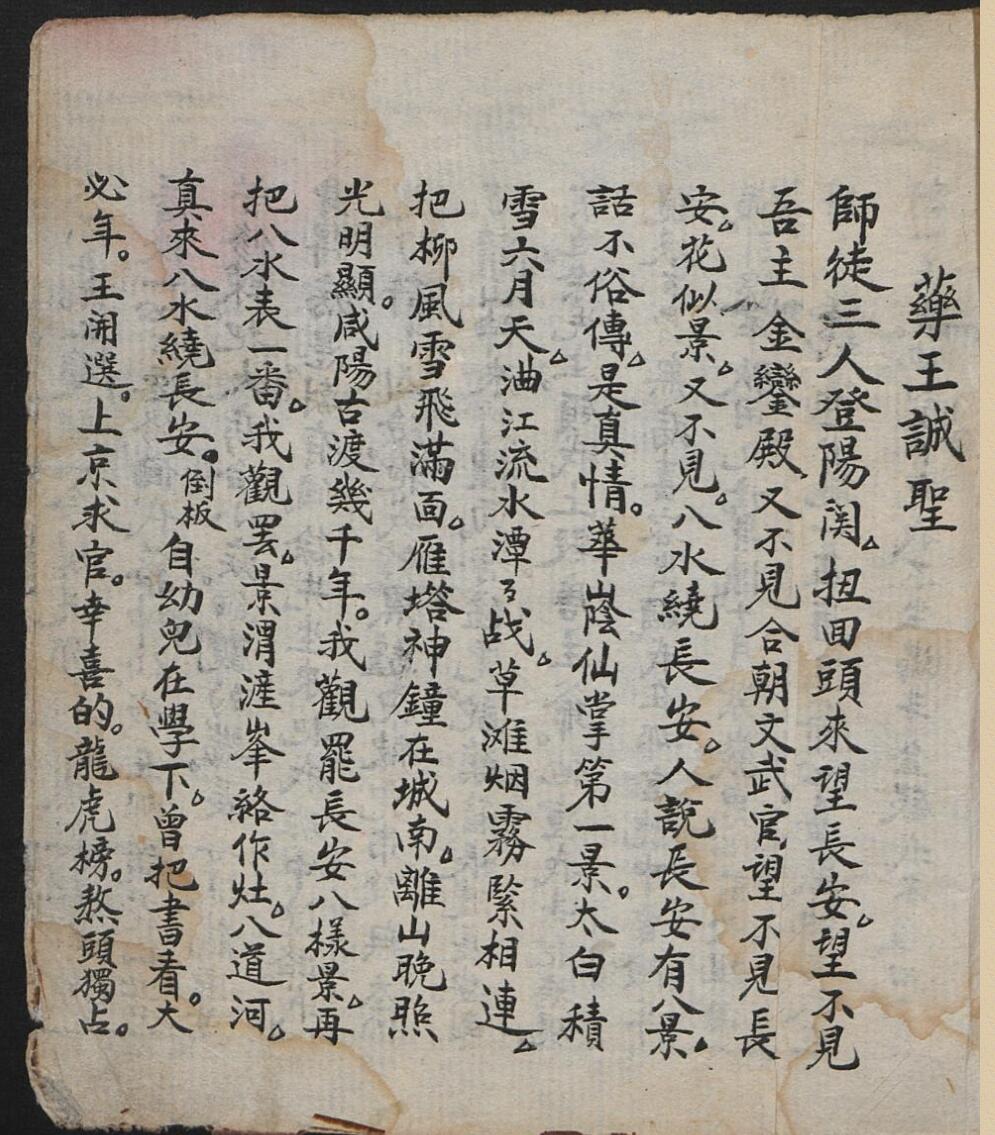 藥王誠聖
師徒三人登陽関。扭回頭來望長安。望不見
吾主金鑾殿、又不見合朝文武官、望不見長
安。花似景。又不見。八水繞長安。人說長安有八景。
話不俗傳。是真情。華嶐仙掌第一景。太白積
雪六月天。油江流水潭々战。草滩烟霧緊相連。
把柳風雪飛滿面。雁塔神鐘在城南。離山晚照
光明顯。咸陽古渡幾千年。我觀罷長安八樣景。再
把八水表一番。我觀罢。景渭滻峯絡作灶。八道河。
真來八水繞長安。倒板自幼兒在學下。曾把書看。大
必年。王開選。上京求官。幸喜的。龍虎榜。熬頭獨占。